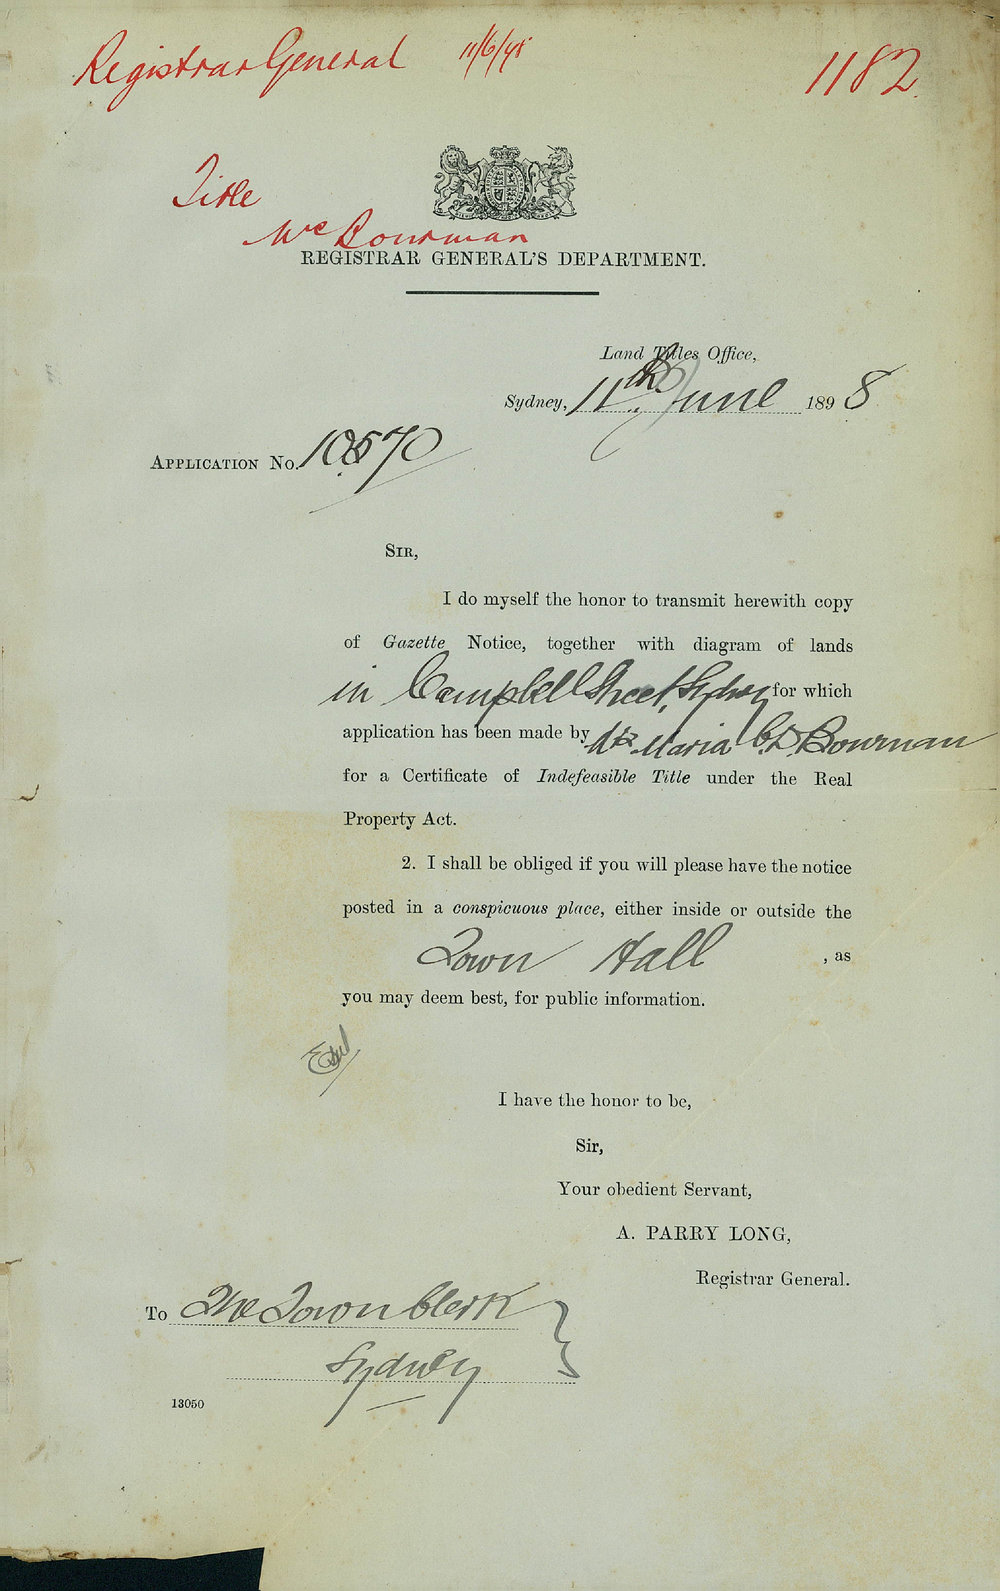 Registrar General 11/6/98 1182
Title
Mrs Bowman
REGISTRAR GENERAL'S DEPARTMENT.
Land Titles Office,
Sydney, 11th June 1898
APPLICATION No. 10570
SIR,
I do myself the honor to transmit herewith copy
of Gazette Notice, together with diagram of lands
in Campbell Street, Sydney for which
application has been made by Mrs Maria C. D. Bowman
for a Certificate of Indefeasible Title under the Real
Property Act.
2. I shall be obliged if you will please have the notice
posted in a conspicuous place, either inside or outside the
Town Hall , as
you may deem best, for public information.
I have the honor to be,
Sir,
Your obedient Servant,
A. PARRY LONG,
Registrar General.
To The Town Clerk
Sydney
13050